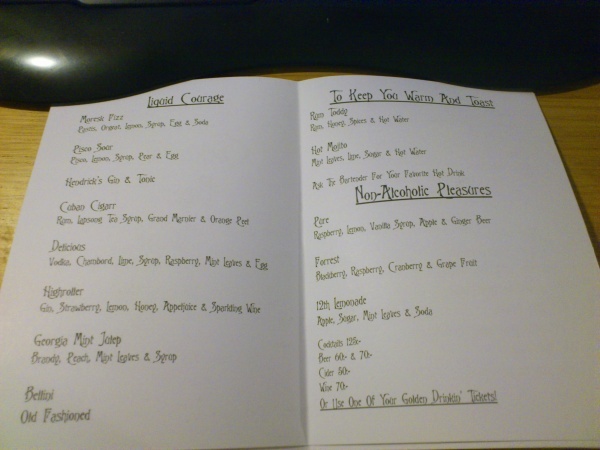 Liquid Courage
Moresk Fizz
Pisco, Orgeat, Lemon, Syrup, Egg & Soda
Pisco Sour
Pisco, Lemon, Syrup, Pear & Egg
Hendrick's Gin & Tonic
Cuban Cigarr
Rum, Lapsong Tea Syrup, Grand Marnier & Orange Peel
Delicious
Vodka, Chambord, Lime, Syrup, Raspberry, Mint Leaves & Egg
Highroller
Gin, Strawberry, Lemon, Honey, Applejuice & Sparkling Wine
Georgia Mint Julep
Brandy, Peach, Mint Leaves & Syrup
Bellini
Old Fashioned
To Keep You Warm And Toast
Rum Toddy
Rum, Honey, Spices & Hot Water
Hot Mojito
Mint Leaves, Lime, Sugar & Hot Water
Ask The Bartender For Your Favorite Hot Drink
Non-Alcoholic Pleasures
Pure
Raspberry, Lemon, Vanilla Syrup, Apple & Ginger Beer
Forrest
Blackberry, Raspberry, Cranberry & Grape Fruit
12th Lemonade
Apple, Sugar, Mint Leaves & Soda
Cocktails 125:-
Beer 60:- & 70:-
Cider 50:-
Wine 70:-
Or Use One Of Your Golden Drinkin' Tickets!